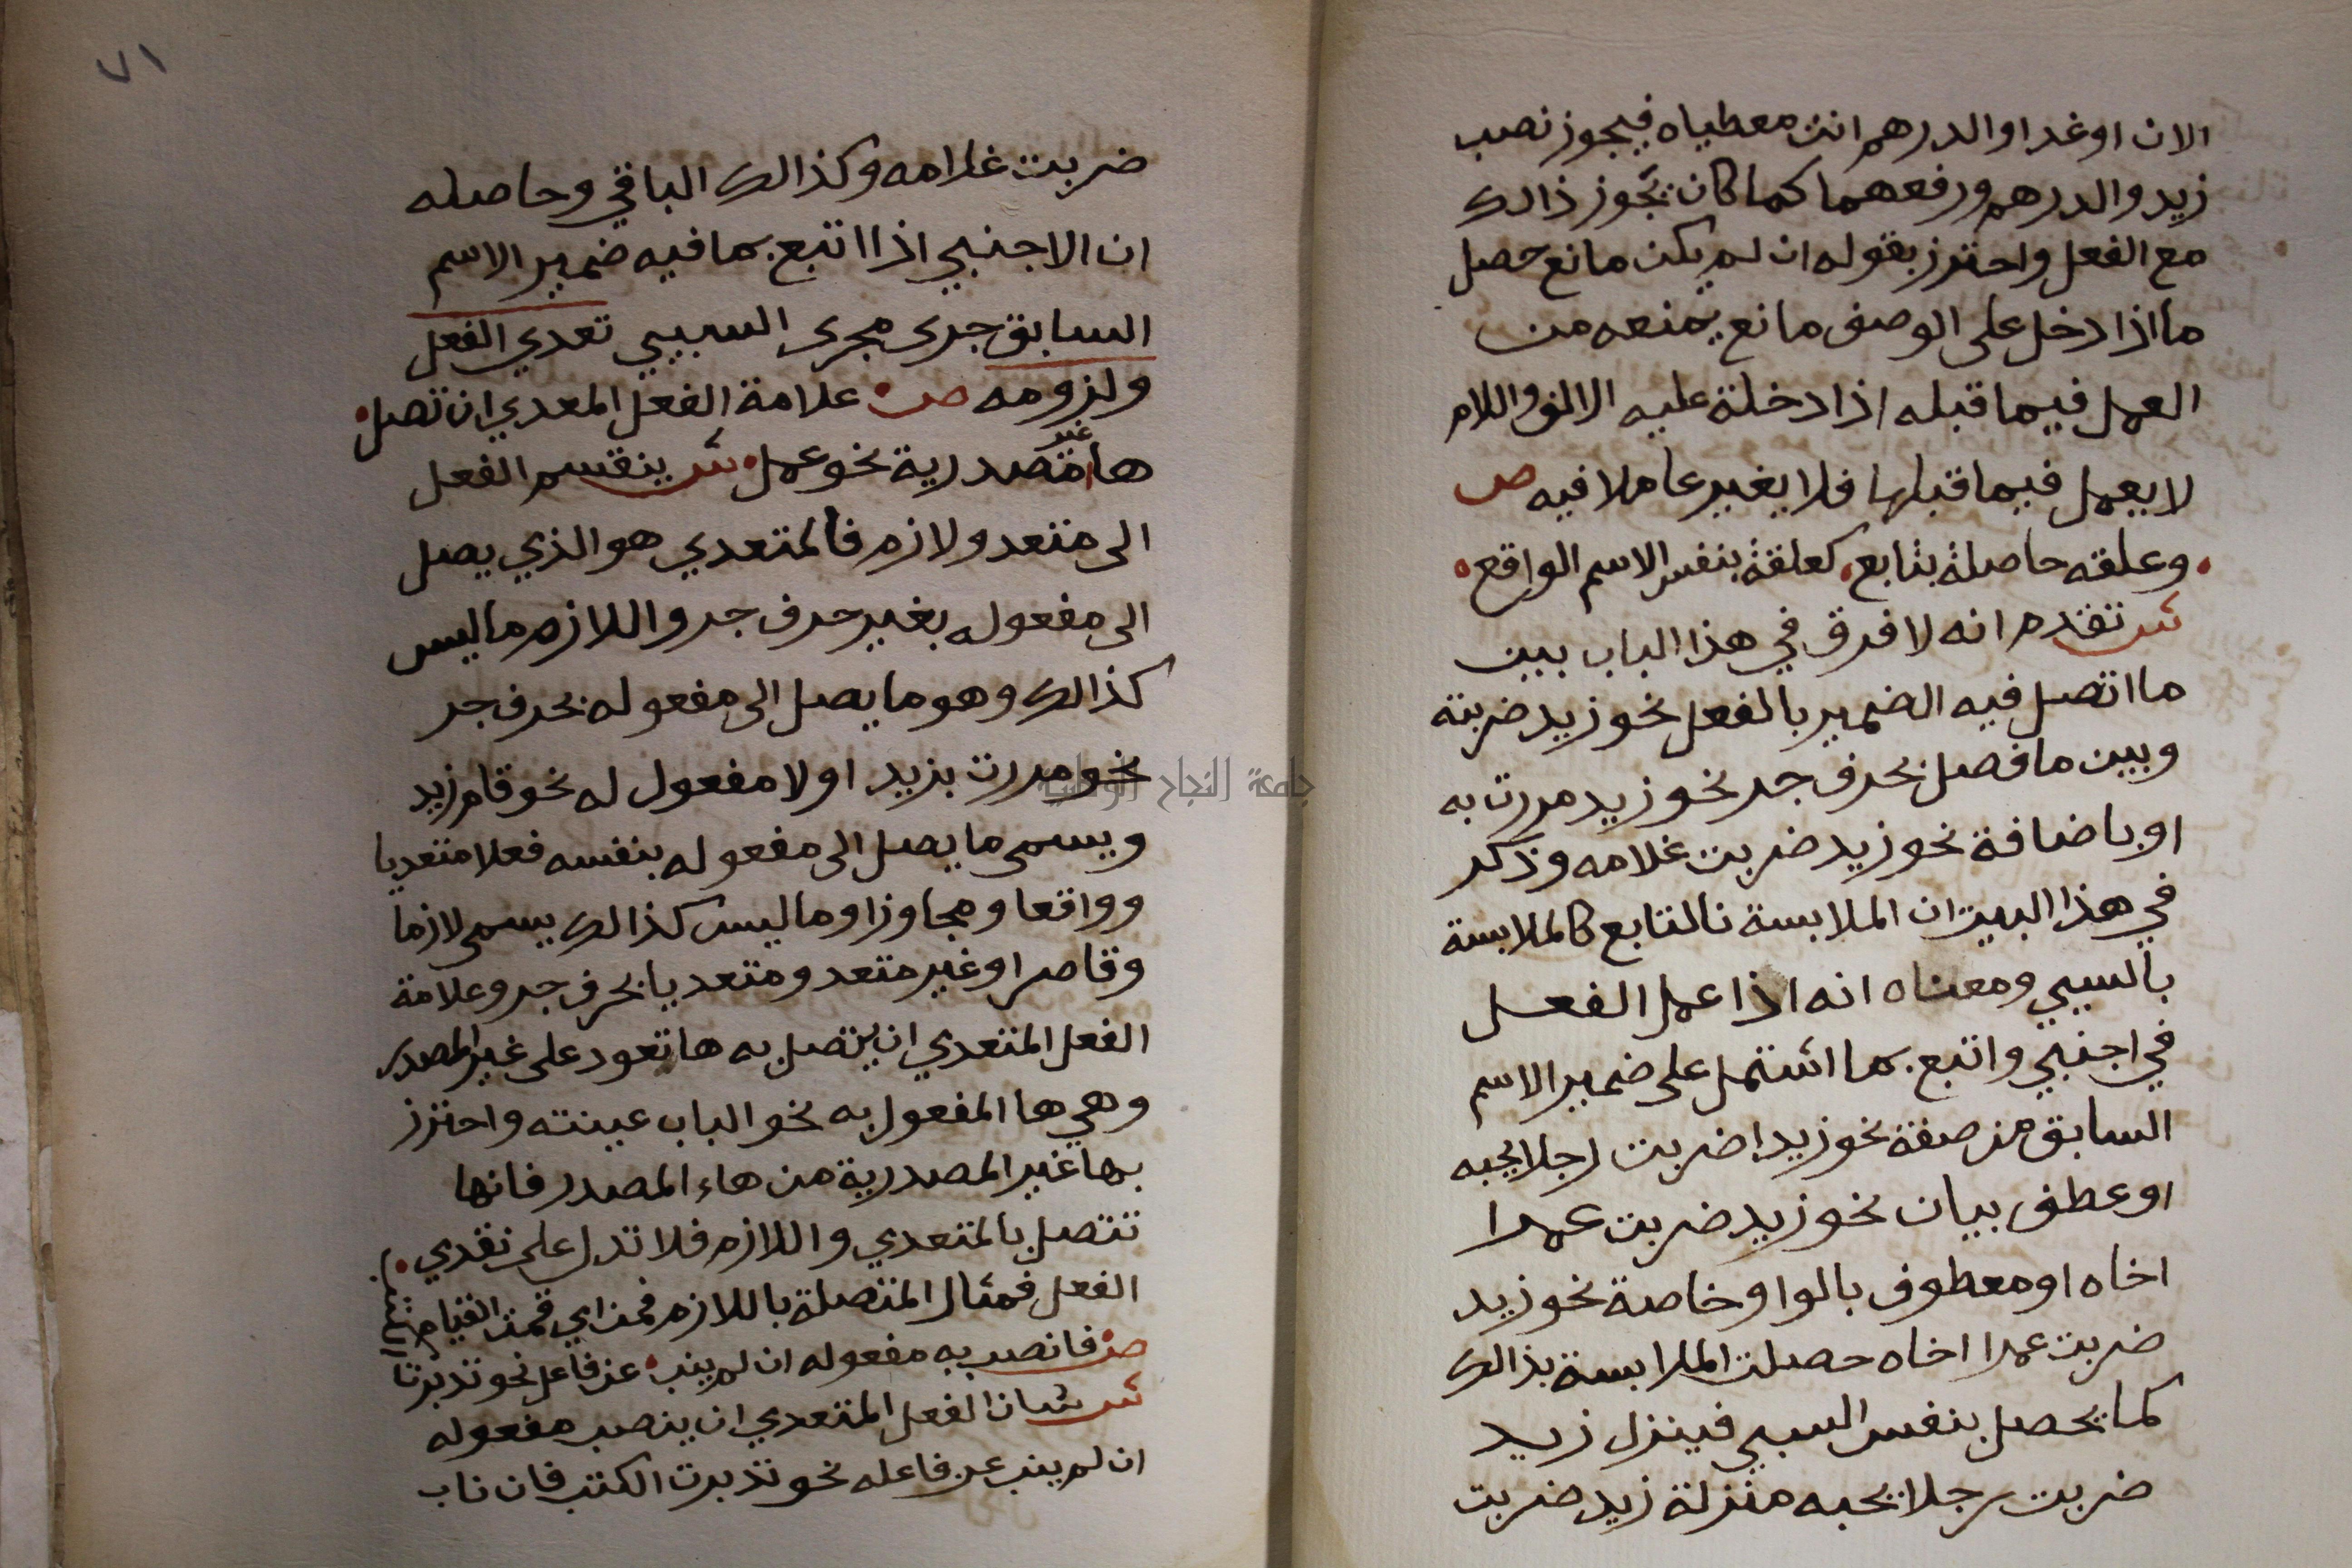 الان او غدا والدرهم انت معطياه فيجوز نصب
زيد والدرهم ورفعهما كما كان يجوز ذالك
مع الفعل واحترز بقوله ان لم يكن مانع حصل
ما اذا دخل على الوصف مانع يمنعه من
العمل فيما قبله اذا دخلة عليه الالف واللام
لا يعمل فيما قبلها فلا يغير عاملا فيه ص
وعلقه حاصلة بتابع كعلقة بنفس الاسم الواقع
ش تقدم انه لا فرق في هذا الباب بين
ما اتصل فيه الضمير بالفعل نحو زيد ضربته
وبين ما فصل بحرف جر نحو زيد مررت به
او باضافة نحو زيد ضربت غلامه وذكر
في هذا البيت ان الملابسة نالتابع كالملابسة
بالسببي ومعناه انه اذا عمل الفعل
في اجنبي واتبع بما اشتمل على ضمير الاسم
السابق من صفة نحو زيدا ضربت رجلا يحبه
او عطف بيان نحو زيد ضربت عمرا
اخاه او معطوف بالواو خاصة نحو زيد
ضربت عمرا اخاه حصلت الملابسة بذالك
كما يحصل بنفس السببي فينزل زيد
ضربت رجلا يحبه منزلة زيد ضربت
٧١
ضربت غلامه وكذالك الباقي وحاصله
ان الاجنبي اذا اتبع بما فيه ضمير الاسم
السابق جرى مجرى السببي تعدي الفعل
ولزومه ص علامة الفعل المعدي ان تصل
ها غير مصدرية نحو عمل ش ينقسم الفعل
الى متعد ولازم فالمتعدي هو الذي يصل
الى مفعوله بغير حرف جر واللازم ما ليس
كذالك وهو ما يصل الى مفعوله بحرف جر
نحو مررت بزيد اولا مفعول له نحو قام زيد
ويسمى ما يصل الى مفعوله بنفسه فعلا متعديا
وواقعا ومجاوزا وما ليس كذالك يسمى لازما
وقاصرا وغير متعد ومتعديا بحرف جر وعلامة
الفعل المتعدي ان يتصل به ها تعود على غير المصدر
وهي ها المفعول به نحو الباب عينته واحترز
بها غير المصدرية من هاء المصدر فانها
تتصل بالمتعدي واللازم فلا تدل على تقدي
الفعل فمثال المتصلة باللازم قمت اي قمت القيام
ص فانصب به مفعوله ان لم ينب عن فاعل نحو تدبرت
ش شان الفعل المتعدي ان ينصب مفعوله
ان لم ينب عن فاعله نحو تدبرت الكتب فان ناب
جامعة النجاح الوطنية